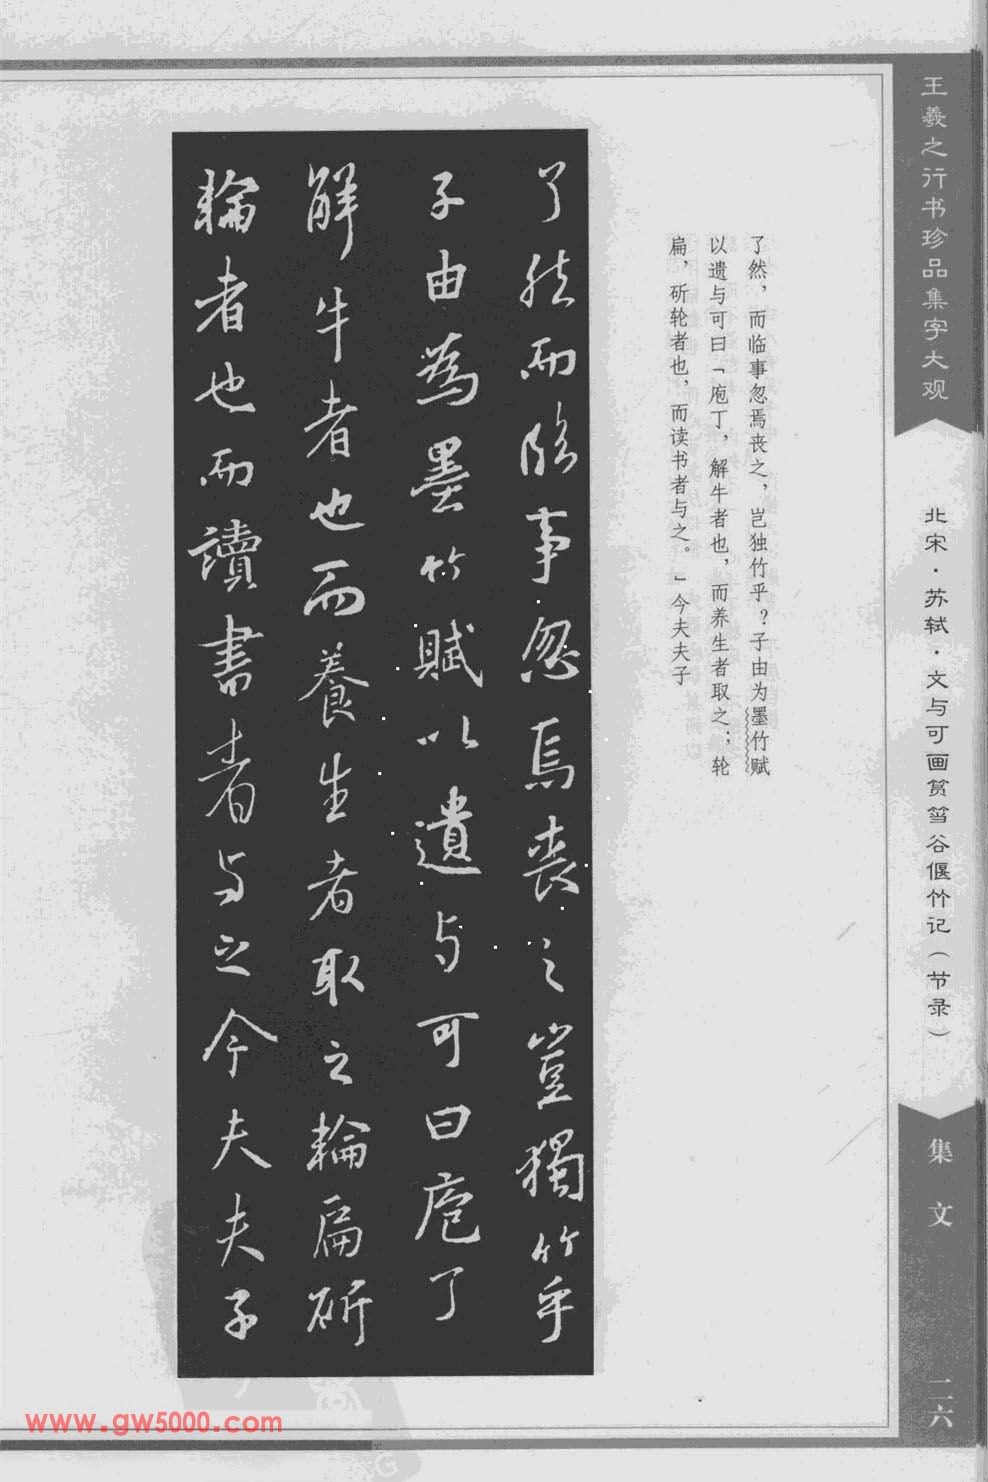 王羲之行书珍品集字大观
北宋·苏轼·文与可画筼筜谷偃竹记（节录）
集文
二六
了然，而临事忽焉丧之，岂独竹乎？子由为墨竹赋
以遗与可曰「庖丁，解牛者也，而养生者取之；轮
扁，斫轮者也，而读书者与之。」今夫夫子
了然而临事忽焉喪之豈獨竹乎
子由為墨竹賦以遺与可曰庖丁
解牛者也而養生者取之輪扁斫
輪者也而讀書者与之今夫夫子
www.gw5000.com